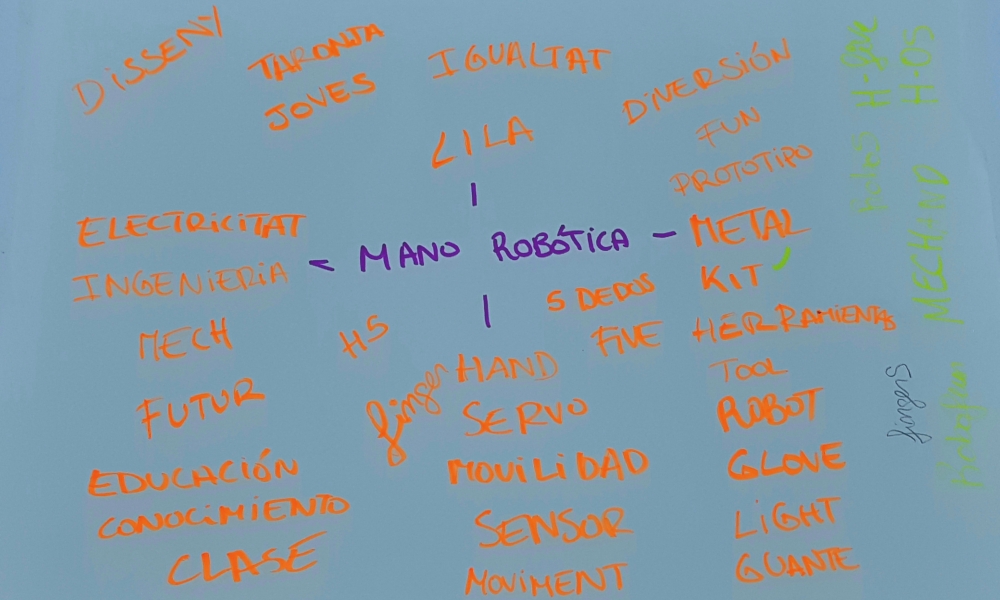 DISSENY
TARONJA
JOVES
IGUALTAT
LILA
DIVERSIÓN
FUN
PROTOTIPO
ELECTRICITAT
INGENIERIA
MECH
FUTUR
EDUCACIÓN
CONOCIMIENTO
CLASE
MANO ROBÓTICA
H5
finger
HAND
SERVO
MOVILIDAD
SENSOR
MOVIMENT
5 DEDOS
FIVE
METAL
KIT
HERRAMIENTAS
TOOL
ROBOT
GLOVE
LIGHT
GUANTE
H-OS
MECHAND
fingers